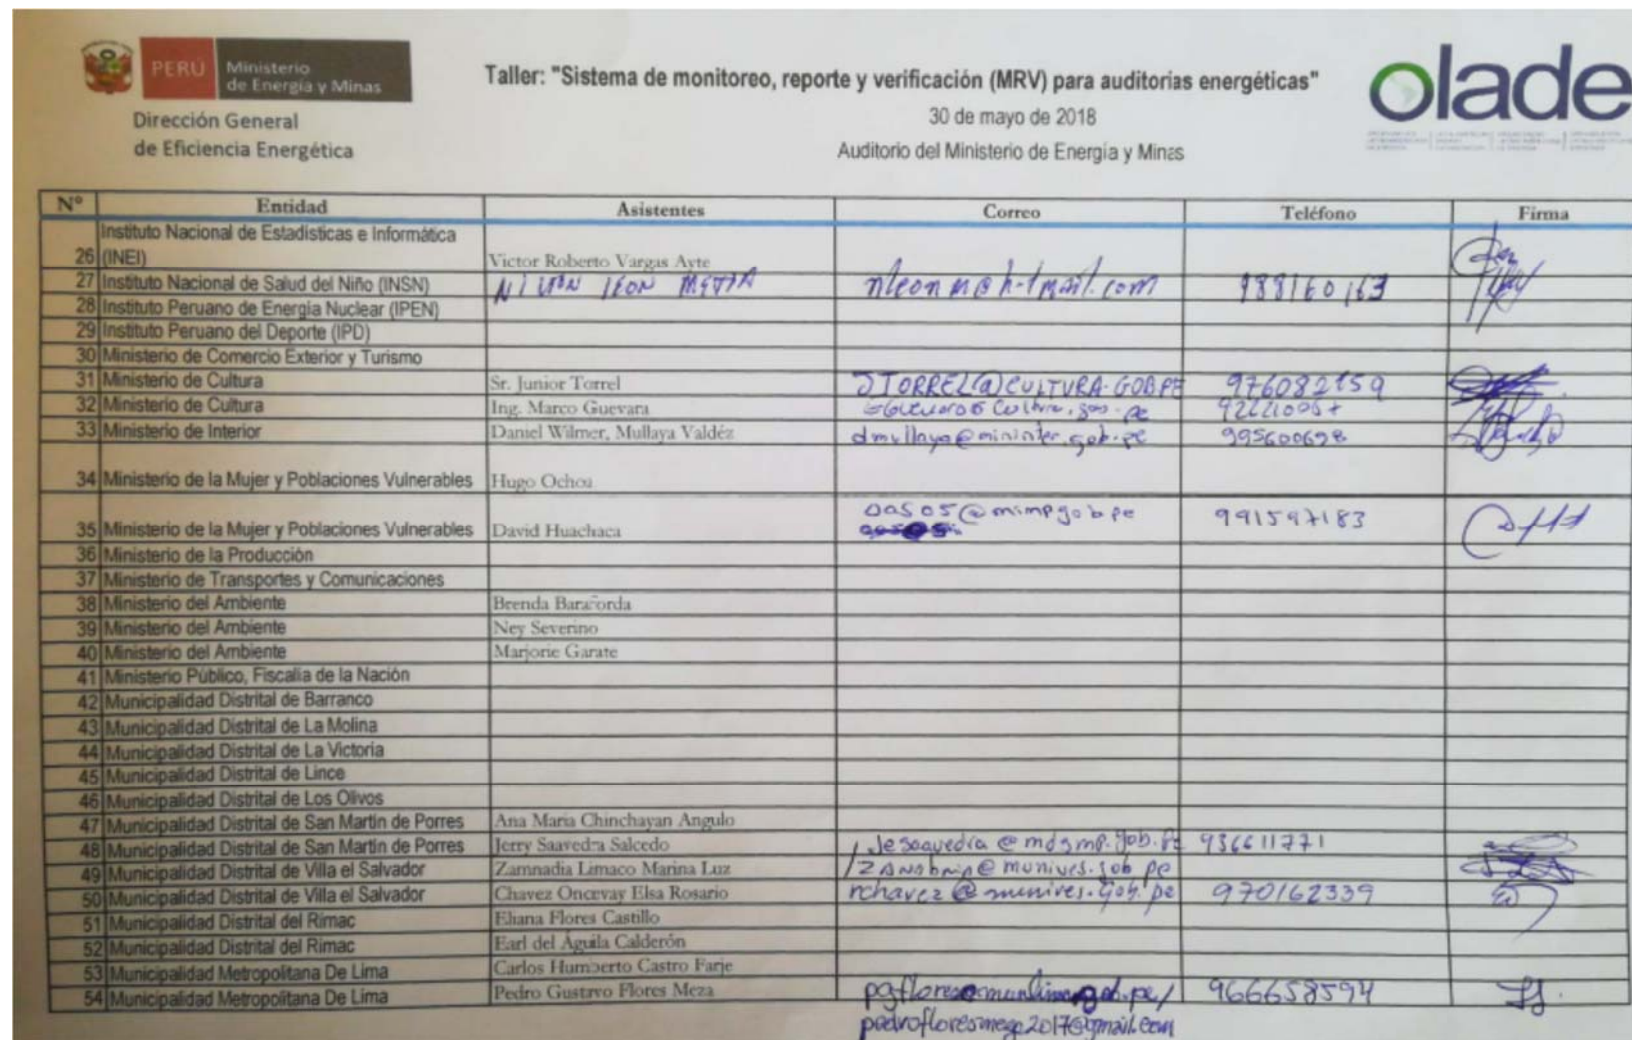 PERÚ Ministerio de Energía y Minas
Dirección General
de Eficiencia Energética
Taller: "Sistema de monitoreo, reporte y verificación (MRV) para auditorias energéticas"
30 de mayo de 2018
Auditorio del Ministerio de Energía y Minas
olade
N° Entidad Asistentes Correo Teléfono Firma
26 Instituto Nacional de Estadísticas e Informática (INEI) Victor Roberto Vargas Ayte
27 Instituto Nacional de Salud del Niño (INSN) LEON 988160163
28 Instituto Peruano de Energía Nuclear (IPEN)
29 Instituto Peruano del Deporte (IPD)
30 Ministerio de Comercio Exterior y Turismo
31 Ministerio de Cultura Sr. Junior Torrel JTORREL@CULTURA.GOB.PE 976082159
32 Ministerio de Cultura Ing. Marco Guevara
33 Ministerio de Interior Daniel Wilmer, Mullaya Valdéz dmullaya@mininter.gob.pe 995600698
34 Ministerio de la Mujer y Poblaciones Vulnerables Hugo Ochoa
35 Ministerio de la Mujer y Poblaciones Vulnerables David Huachaca oas05@mimp.gob.pe 991597183
36 Ministerio de la Producción
37 Ministerio de Transportes y Comunicaciones
38 Ministerio del Ambiente Brenda
39 Ministerio del Ambiente Ney Severino
40 Ministerio del Ambiente Marjorie Garate
41 Ministerio Público, Fiscalía de la Nación
42 Municipalidad Distrital de Barranco
43 Municipalidad Distrital de La Molina
44 Municipalidad Distrital de La Victoria
45 Municipalidad Distrital de Lince
46 Municipalidad Distrital de Los Olivos
47 Municipalidad Distrital de San Martin de Porres Ana Maria Chinchayan Angulo
48 Municipalidad Distrital de San Martin de Porres Jerry Saavedra Salcedo jesaavedra@mdsmp.gob.pe 936611771
49 Municipalidad Distrital de Villa el Salvador Zamnadia Limaco Marina Luz
50 Municipalidad Distrital de Villa el Salvador Chavez Oncevay Elsa Rosario rchavez@munives.gob.pe 970162339
51 Municipalidad Distrital del Rimac Eliana Flores Castillo
52 Municipalidad Distrital del Rimac Earl del Águila Calderón
53 Municipalidad Metropolitana De Lima Carlos Humberto Castro Farje
54 Municipalidad Metropolitana De Lima Pedro Gustavo Flores Meza 966658594